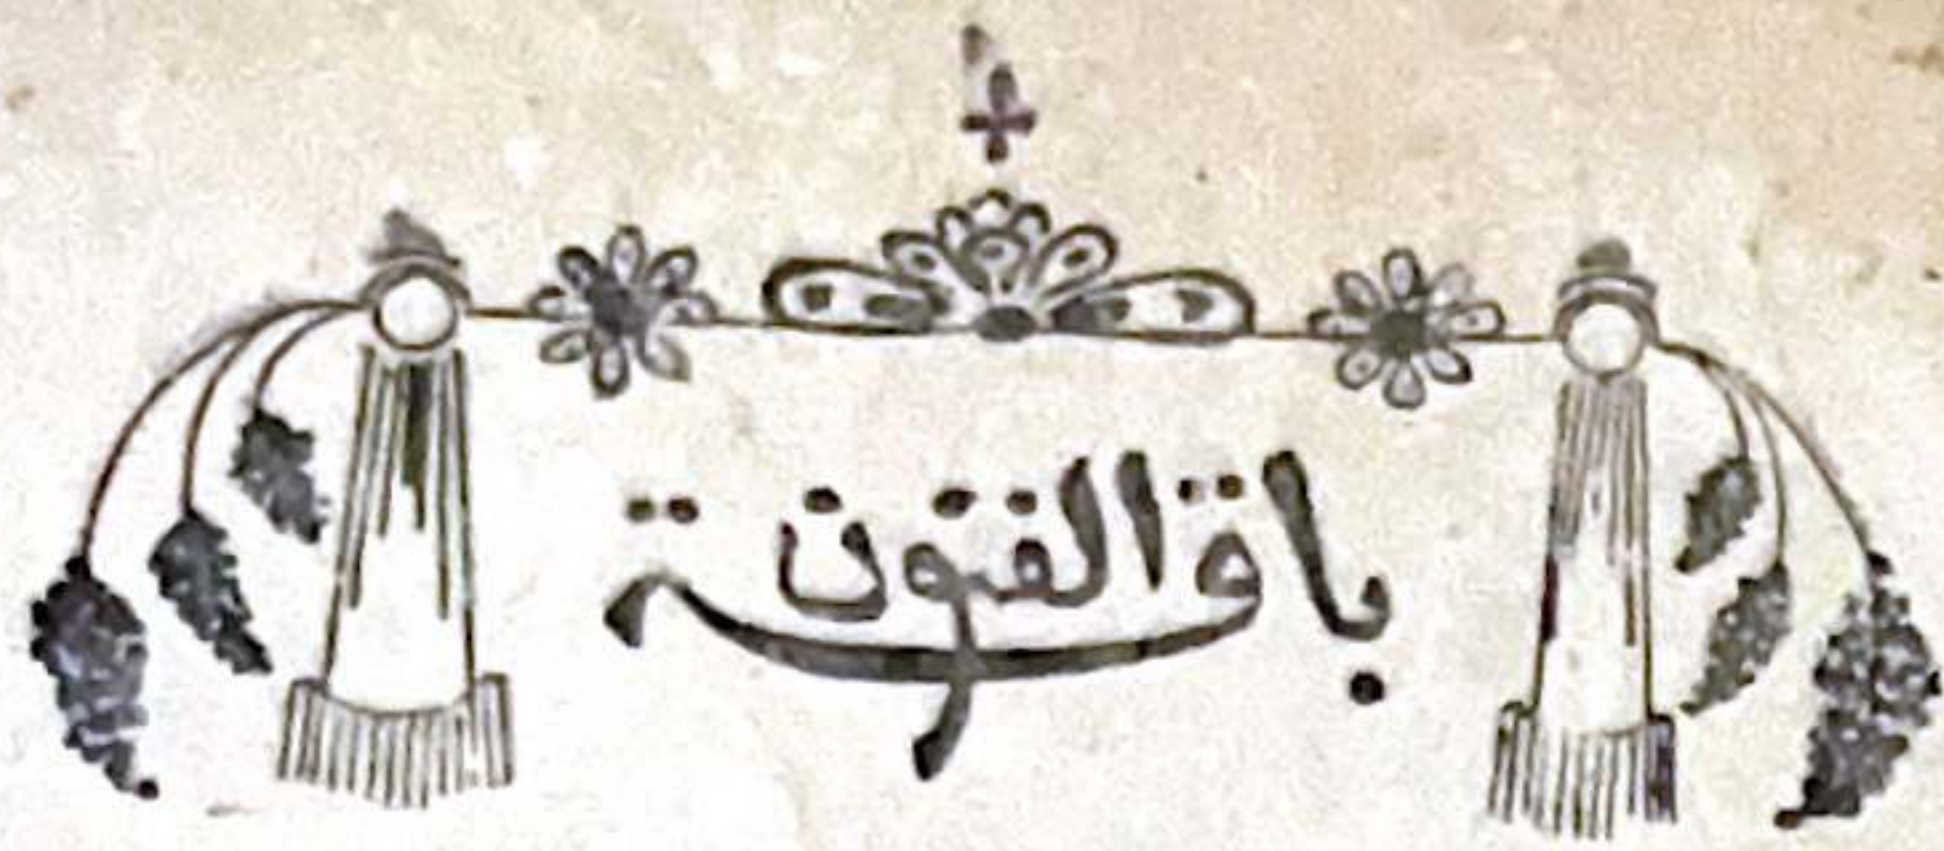 باقة الفنون